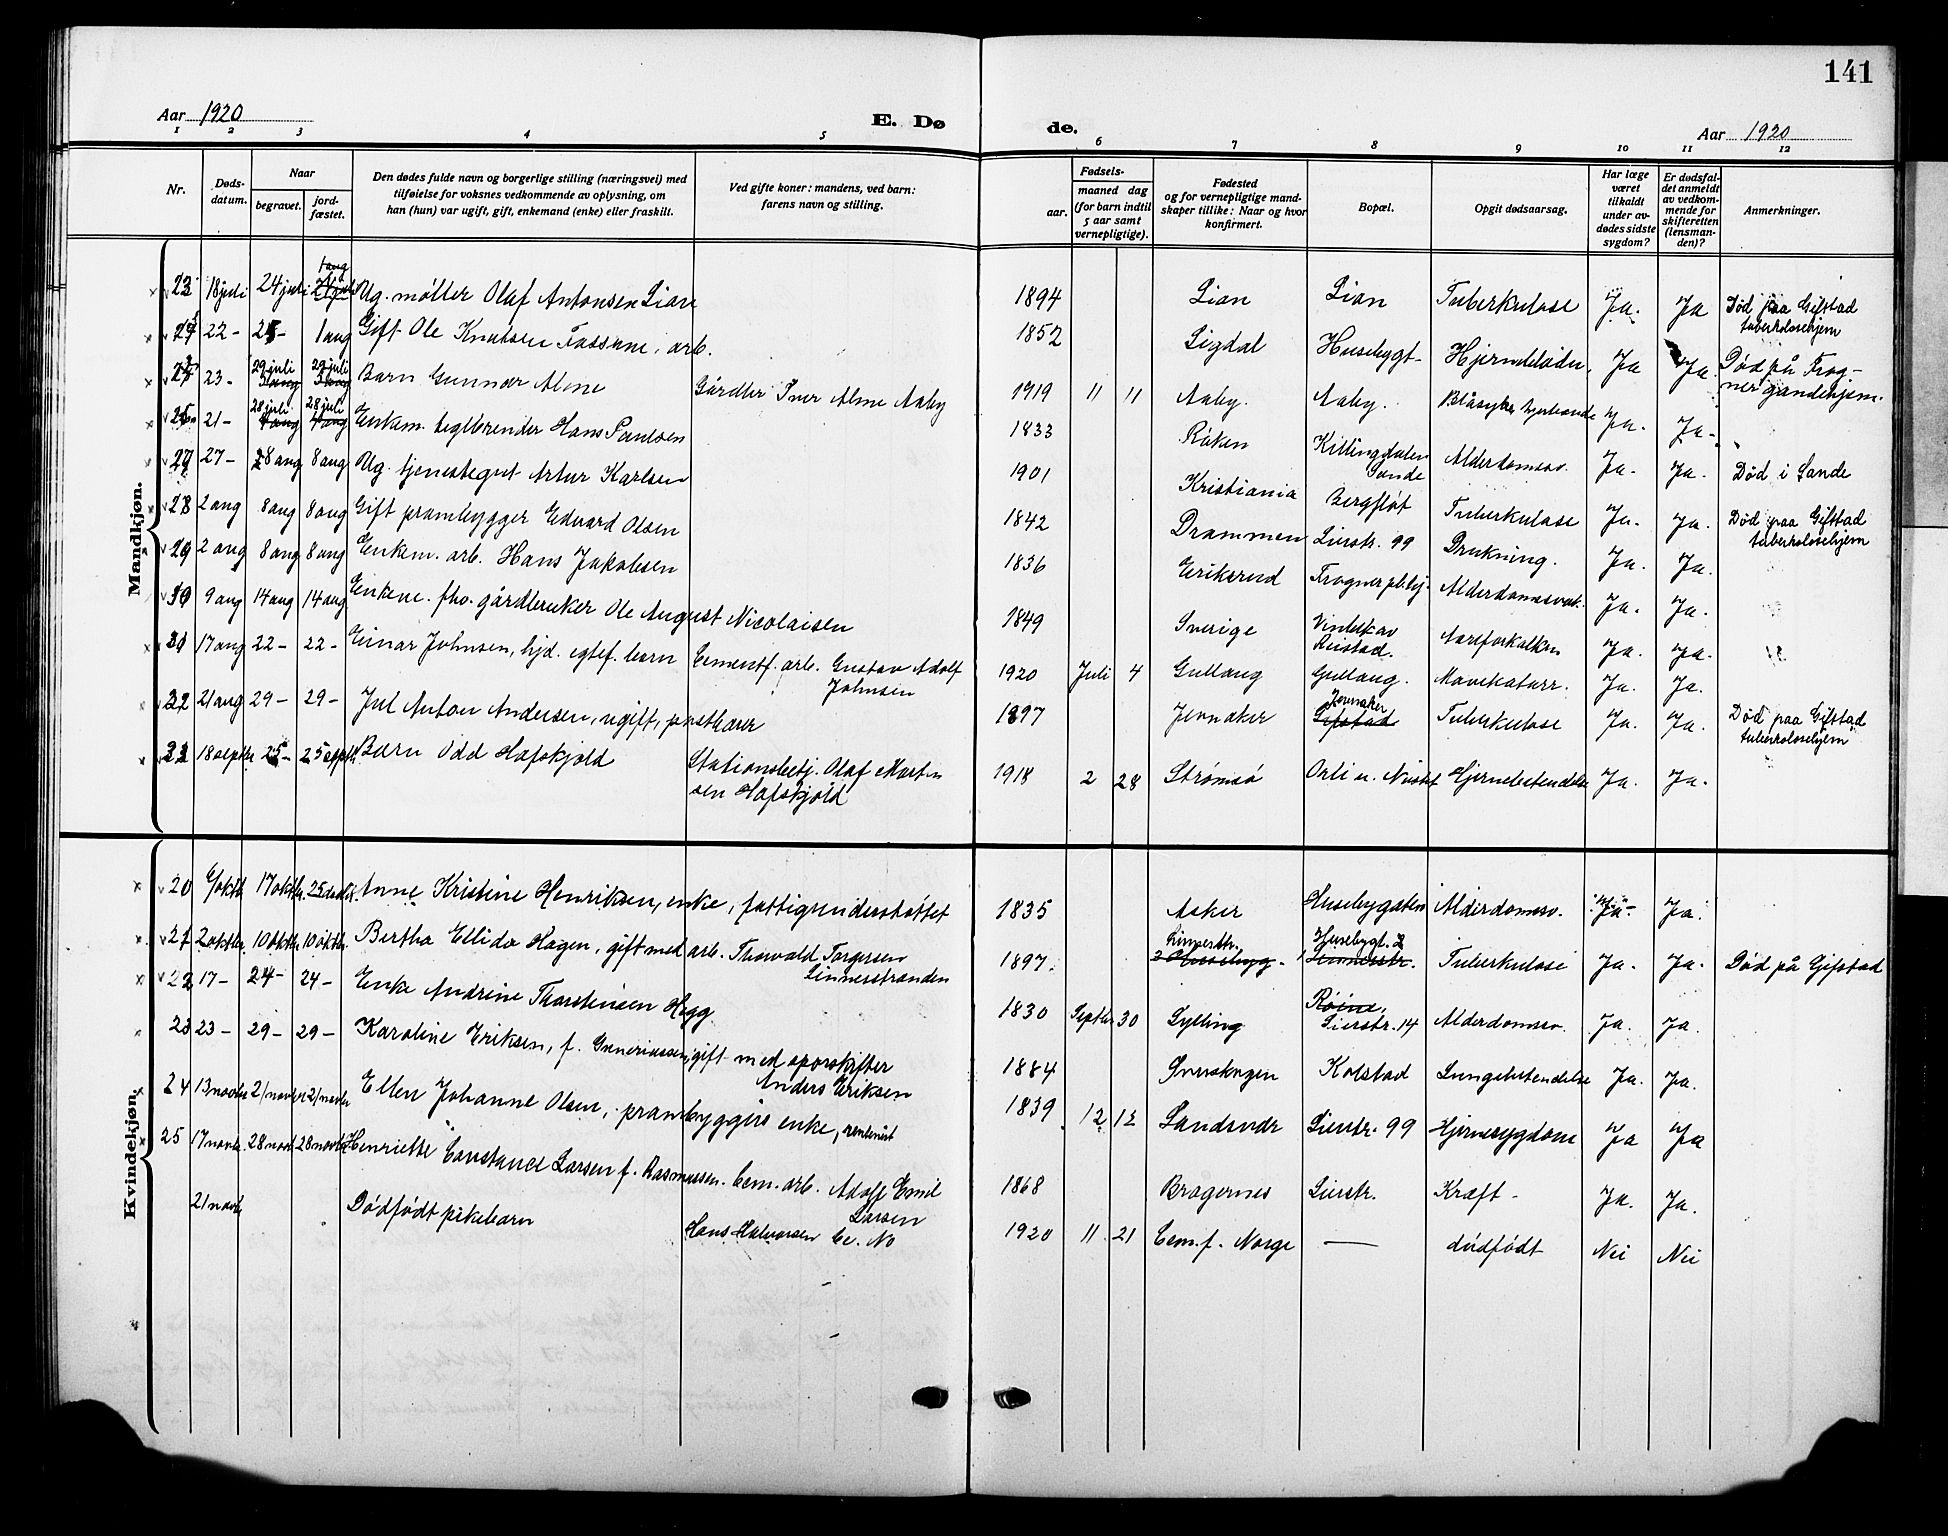 141
Aar 1920
E. Dø
de.
Aar 1920
1 2 3 4 5 6 7 8 9 10 11 12
Nr.
Døds-
datum.
Naar
begravet.
jord-
fæstet.
Den dødes fulde navn og borgerlige stilling (næringsvei) med
tilføielse for voksnes vedkommende av oplysning, om
han (hun) var ugift, gift, enkemand (enke) eller fraskilt.
Ved gifte koner: mandens, ved barn:
farens navn og stilling.
Fødsels-
aar.
maaned dag
(for barn indtil
5 aar samt
vernepligtige).
Fødested
og for vernepligtige mand-
skaper tillike: Naar og hvor
konfirmert.
Bopæl.
Opgit dødsaarsag.
Har læge
været
tilkaldt
under av-
dødes sidste
sygdom?
Er dødsfal-
det anmeldt
av vedkom-
mende for
skifteretten
(lensman-
den)?
Anmerkninger.
Mandkjøn.
23 18 juli 24 juli 1 aug Ug. møller Olaf Antonsen Lian 1894 Lian Lian Tuberkulose Ja. Ja Død paa Gifstad
tuberkolosehjem
22 - 1 aug Gift Ole Knutsen Fossune, arb. 1852 Sigdal Husebygt- Ja Ja Død på Frog-
ner gamlehjem.
23 - 29 juli 29 juli Barn Gunnar Alme Gårdbr Iver Alme Aaby 1919 11 11 Aaby. Aaby. Ja. Ja -
21 - 28 juli 28 juli Enkem. teglbrender Hans Paulsen 1833 Røken Killingdalen
Sande Alderdomssv. Ja. Ja. Død i Sande
27 27 - 8 aug 8 aug Ug. tjenestegut Artur Karlsen 1901 Kristiania Bergfløt Tuberkulose Ja. Ja. Død paa Gifstad
tuberkolosehjem
28 2 aug 8 aug 8 aug Gift prambygger Edvard Olsen 1842 Drammen Lierstr. 99 Drukning. Ja. Ja.
29 2 aug 8 aug 8 aug Enkm. arb. Hans Jakobsen 1836 Eriksrud Frogner plhj. Alderdomssvak. Ja. Ja.
30 9 aug 14 aug 14 aug Enkem. fhv. gårdbruker Ole August Nicolaisen 1849 Sverige Reistad. Aareforkalkn Ja. Ja.
31 17 aug 22 - 22 - Einar Johnsen, hjd. egtef. barn Cementf. arb. Gustav Adolf
Johnsen 1920 Juli 4 Gullaug Gullaug. Mavekatarr. Ja. Ja.
32 21 aug 29 - 29 - Jul Anton Andersen, ugift, postbærer 1897 Jevnaker Jevnaker
Gifstad Tuberkulose Ja. Ja. Død paa Gifstad
tuberkolosehjem
33 18 septbr 25 - 25 septbr Barn Odd Hafskjold Stationsbetj. Olaf Mortin
sen Hafskjold 1918 2 28 Strømsø Hjernebetendelse Ja. Ja.
Kvindekjøn.
20 17 oktbr. Anne Kristine Henriksen, enke, fattigunderstøttet 1835 Asker Husebygaten Alderdomssv. Ja - Ja.
21 2 oktbr. 10 oktbr. 10 oktbr. Bertha Ellida Hagen, gift med arb. Thorvald Torgersen
Linnesstranden 1897. Linnesstr. Husebygt. 2
Linnesstr. Tuberkulose Ja. Ja. Død på Gifstad
22 17 - 24 - 24 - Enke Andrine Thorstensen Hegg 1830 Septbr 30 Sylling Lierstr. 14 Alderdomssv. Ja. Ja.
23 23 - 29 - 29 - Karoline Eriksen, f. Guneriussen, gift med sporskifter
Anders Eriksen 1884 Kolstad Lungebetendelse Ja. Ja.
24 13 novbr 21 novbr 21 novbr Ellen Johanne Olsen, prambyggers enke, rentenist 1839 12 Sandsvær Lierstr. 99 Hjernesygdom Ja Ja
25 17 novbr. 28 novb 28 novbr Henriette Constance Larsen f. Rasmussen. Cem. arb. Adolf Emil
Larsen 1868 Bragernes Lierstr. Kræft - Ja. Ja.
21 novb Dødfødt pikebarn Hans Halvorsen Ce. No 1920 11 21 Cem. f. Norge — dødfødt Nei Nei